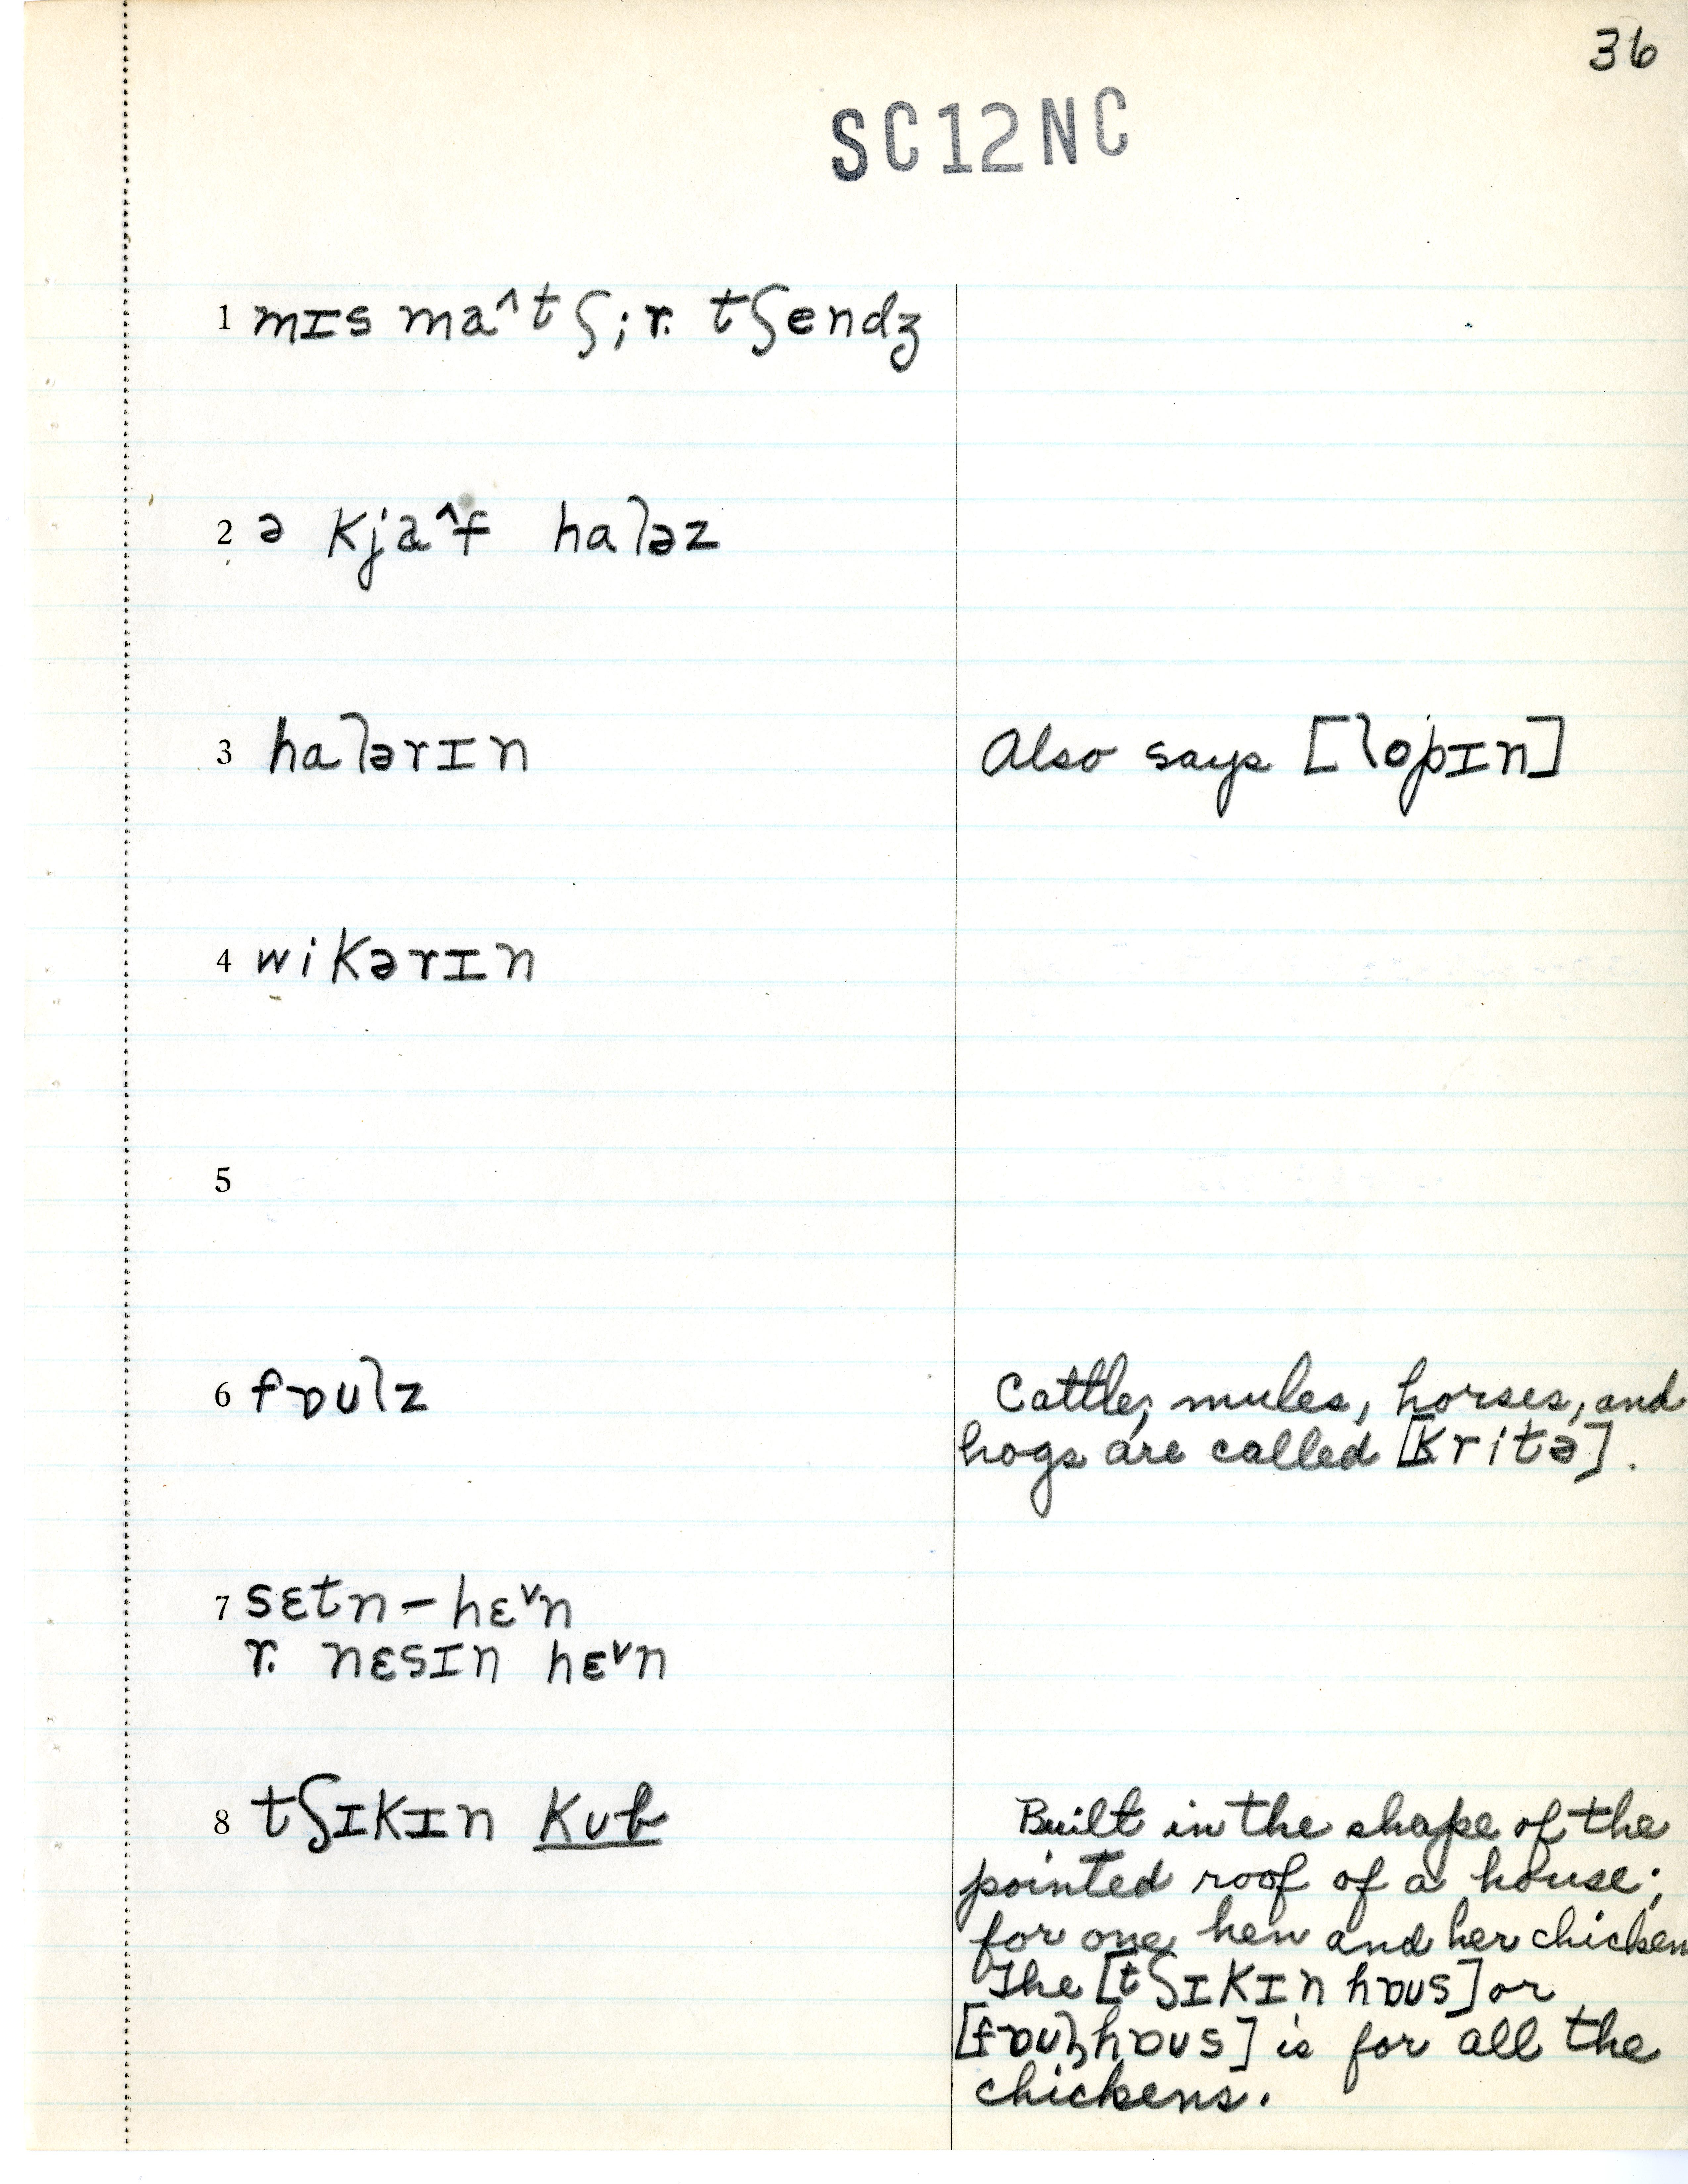 36
SC12NC
1 mɪs ma^tʃ; r. tʃendʒ
2 ə kja^f haləz
3 halərɪn Also says [lopɪn]
4 wikərɪn
5
6 fɒʊlz Cattle, mules, horses, and
hogs are called [kritə].
7 sɛtn-hɛ˅n
r. nɛsɪn hɛ˅n
8 tʃɪkɪn kub Built in the shape of the
pointed roof of a house;
for one hen and her chicken
The [tʃɪkɪn hɒʊs] or
[fɒʊl hɒʊs] is for all the
chickens.